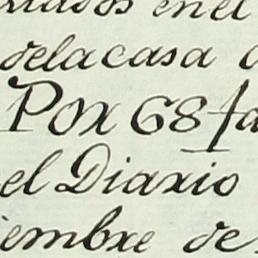 en el
dela casa
Por 68 fa
el Diario
iembre de